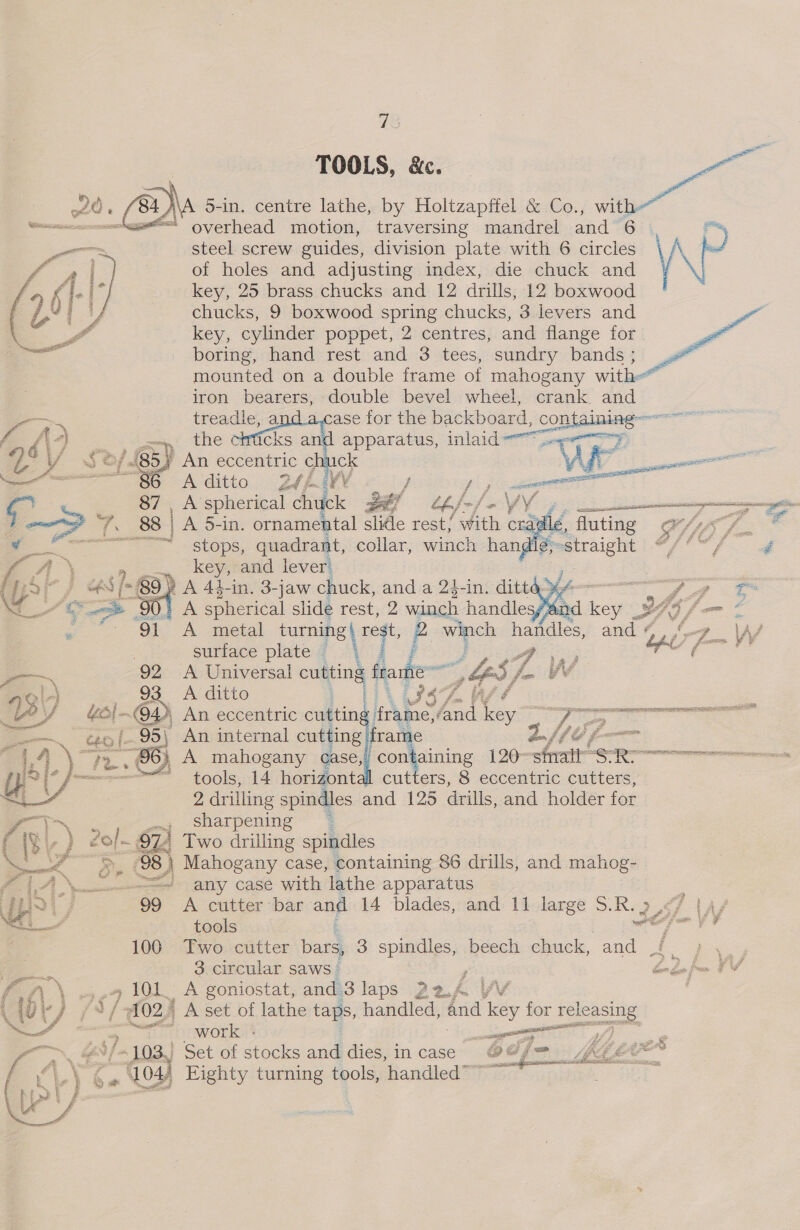 7
TOOLS, &c.
20. 84 A 5-in. centre lathe, by Holtzapffel & Co., with
overhead motion, traversing mandrel and 6
steel screw guides, division plate with 6 circles
of holes and adjusting index, die chuck and
key, 25 brass chucks and 12 drills, 12 boxwood
chucks, 9 boxwood spring chucks, 3 levers and
key, cylinder poppet, 2 centres, and flange for
boring, hand rest and 3 tees, sundry bands;
mounted on a double frame of mahogany with
iron bearers, double bevel wheel, crank and
treadle, and a case for the backboard, containing
the chucks and apparatus, inlaid
85 An eccentric chuck
86 A ditto
87 A spherical chuck
7. 88 A 5-in. ornamental slide rest, with cradle, fluting
stops, quadrant, collar, winch handle, straight
key, and lever
89 A 4½-in. 3-jaw chuck, and a 2½-in. ditto
90 A spherical slide rest, 2 winch handles, and key
91 A metal turning rest, 2 winch handles, and
surface plate
92 A Universal cutting frame
93 A ditto
94 An eccentric cutting frame, and key
95 An internal cutting frame
96 A mahogany case, containing 120 small S.R.
tools, 14 horizontal cutters, 8 eccentric cutters,
2 drilling spindles and 125 drills, and holder for
sharpening
97 Two drilling spindles
98 Mahogany case, containing 86 drills, and mahog-
any case with lathe apparatus
99 A cutter bar and 14 blades, and 11 large S.R.
tools
100 Two cutter bars, 3 spindles, beech chuck, and
3 circular saws
101 A goniostat, and 3 laps
102 A set of lathe taps, handled, and key for releasing
work
103 Set of stocks and dies, in case
104 Eighty turning tools, handled